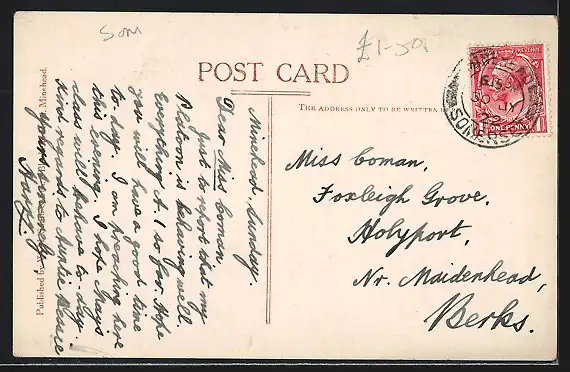 Som
£1-50
POST CARD
THE ADDRESS ONLY TO BE WRITTEN
MINEHEAD
8.15 PM
30 JY
22
SOMERSET
ONE PENNY
Miss Coman,
Foxleigh Grove,
Holyport,
Nr. Maidenhead,
Berks.
Minehead, Sunday.
Dear Miss Coman
Just to report that my
is behaving well.
Everything A.1 so far. Hope
you will have a good time
to-day. I am preaching here
this evening. I hope
class will behave to-day.
Kind regards to Auntie Bessie
Yours sincerely
Published by
Minehead.